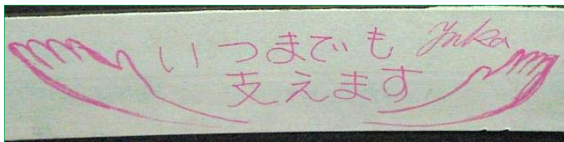 いつまでも Yuka
支えます